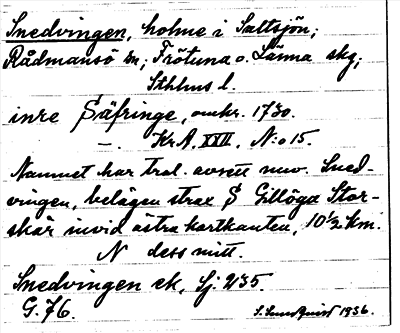 Snedvingen, holme i Saltsjön;
Rådmansö sn; Frötuna o. Länna skg;
Sthlms l.
inre Säfringe, omkr. 1730.
–. KrA, XXII, N:o 15.
Namnet har trol. avsett nuv. Sned-
vingen, belägen strax S Gillöga Stor-
skär invid östra kartkanten, 10½ km.
N dess mitt.
Snedvingen ek, Sj. 235.
G. 76. S. Sundquist 1936.